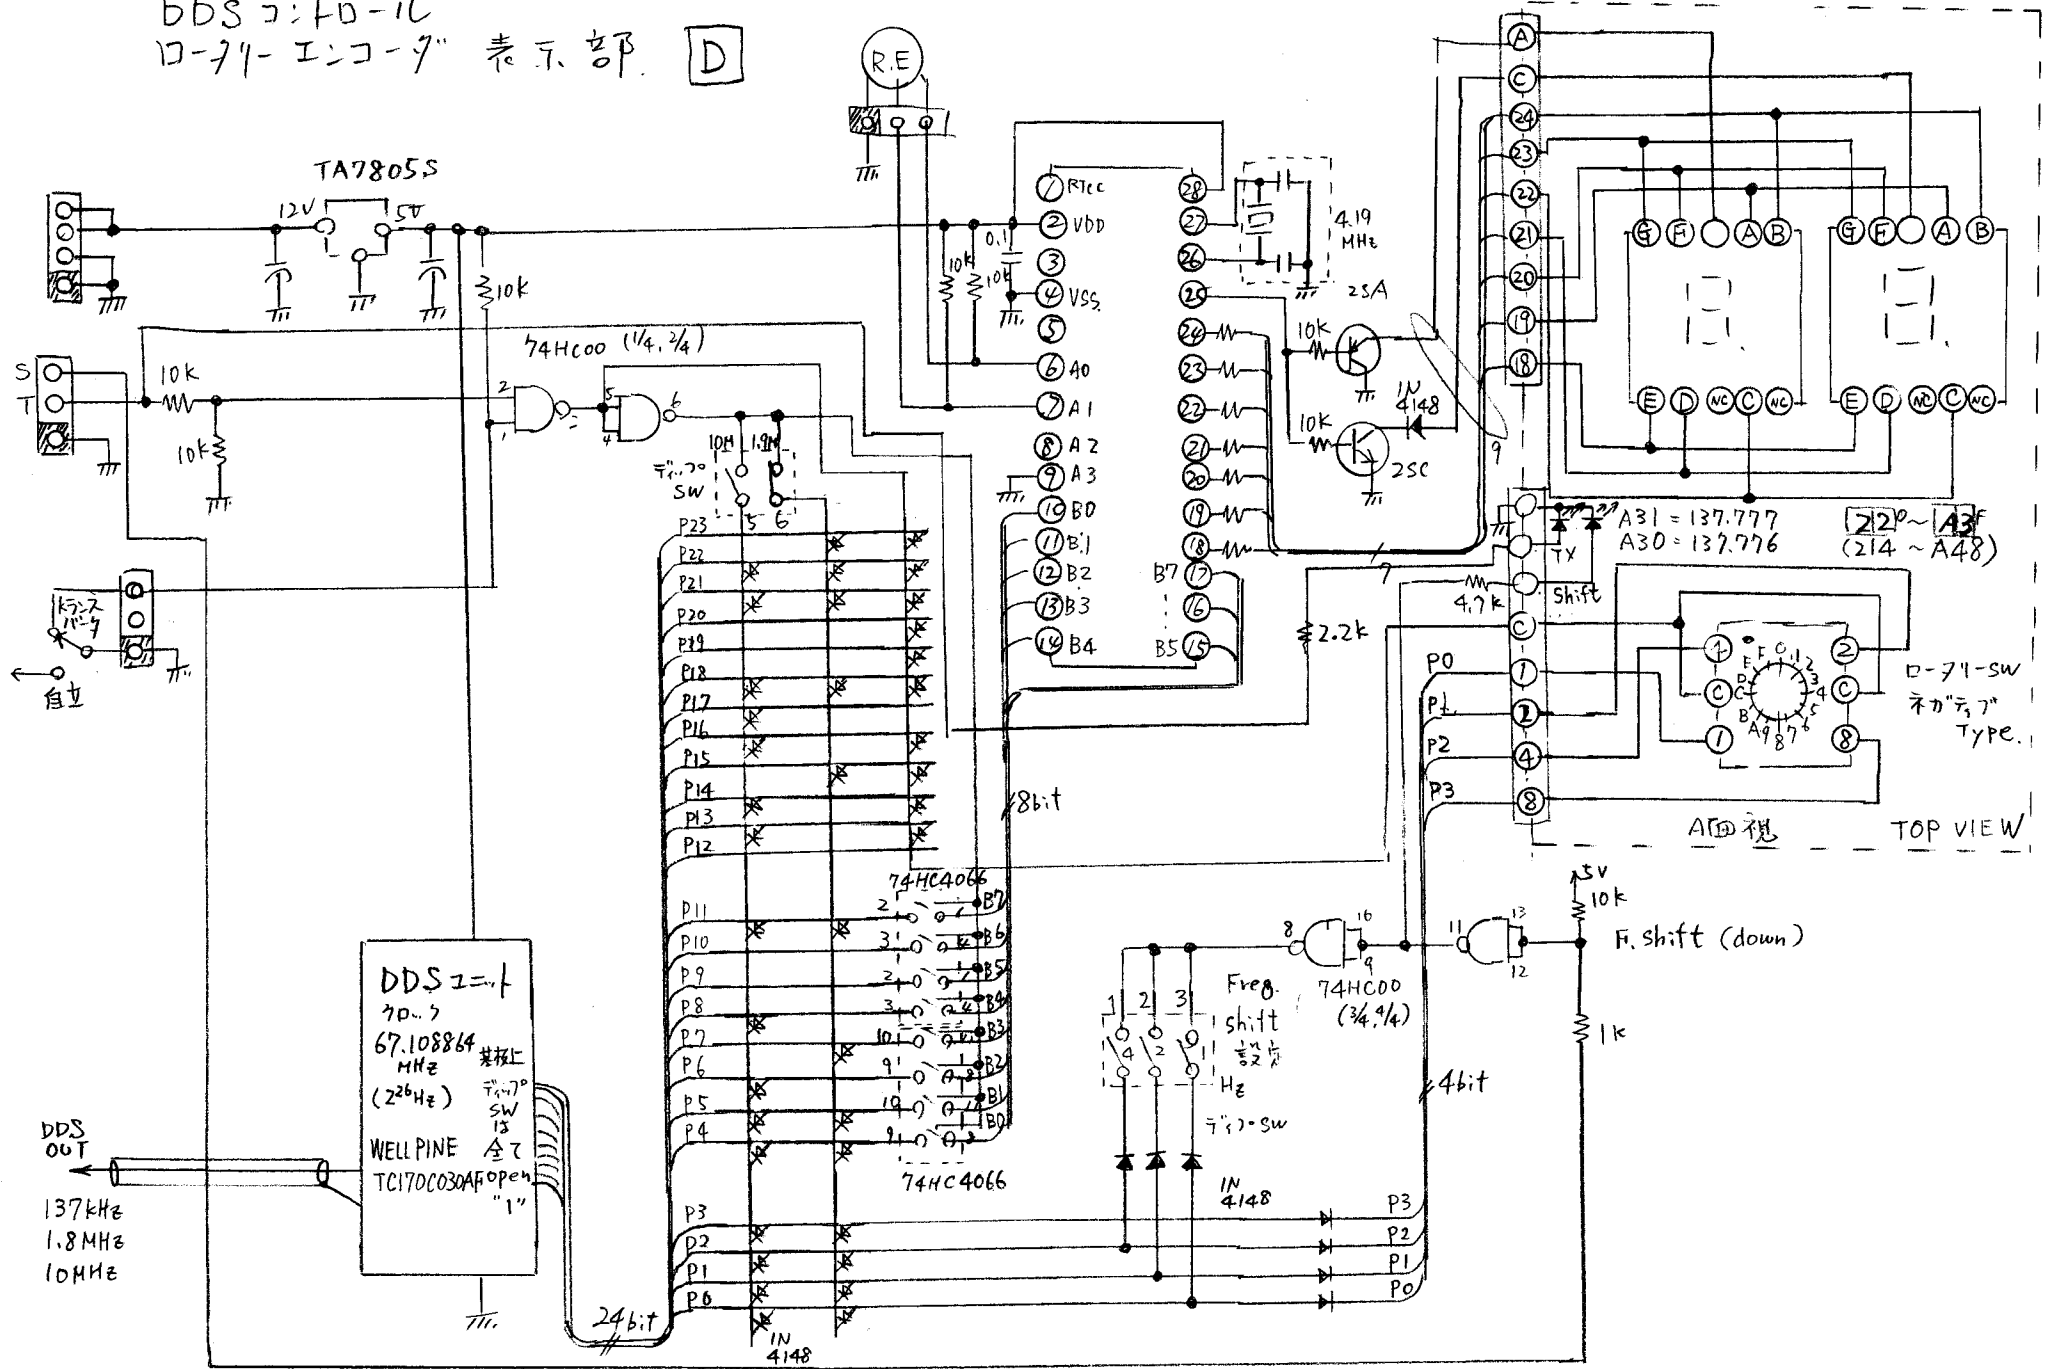 DDSコントロール
ロータリーエンコーダ 表示部 D
R.E
TA7805S
12V
5V
10K
S
T
10K
10K
74HC00 (1/4, 2/4)
2
1
5
4
6
10M 1.9M
ディップ
SW
5 6
トランス
バータ
自立
0.1
10K
10K
1 RTCC
2 VDD
3
4 VSS
5
6 A0
7 A1
8 A2
9 A3
10 B0
11 B1
12 B2
13 B3
14 B4
28
27
26
25
24
23
22
21
20
19
18
B7 17
16
B5 15
4.19
MHz
2SA
10K
10K
1N
4148
2SC
9
7
2.2K
4.7K
A
C
24
23
22
21
20
19
18
G F A B
G F A B
E D NC C NC
E D NC C NC
TX
Shift
A31 = 137.777
A30 = 137.776
22 ~ A3
(214 ~ A48)
C
1
2
4
8
P0
P1
P2
P3
1 2
C C
1 8
0 1 2 3 4 5 6 7 8 9 A B C D E F
ロータリーSW
ネガティブ
Type.
TOP VIEW
P23
P22
P21
P20
P19
P18
P17
P16
P15
P14
P13
P12
P11
P10
P9
P8
P7
P6
P5
P4
P3
P2
P1
P0
8bit
74HC4066
2
3
2
3
10
9
10
9
B7
B6
B5
B4
B3
B2
B1
B0
74HC4066
DDSユニット
クロック
67.108864
MHz
(2²⁶Hz)
基板上
ディップ
SW
は
全て
open
"1"
WELLPINE
TC170C030AF
DDS
OUT
137kHz
1.8MHz
10MHz
24bit
1N
4148
5V
10K
F. shift (down)
1K
13
12
11
10
9
8
74HC00
(3/4, 4/4)
Freq.
shift
設定
Hz
ディップSW
1 2 3
4 2 1
1N
4148
4bit
P3
P2
P1
P0